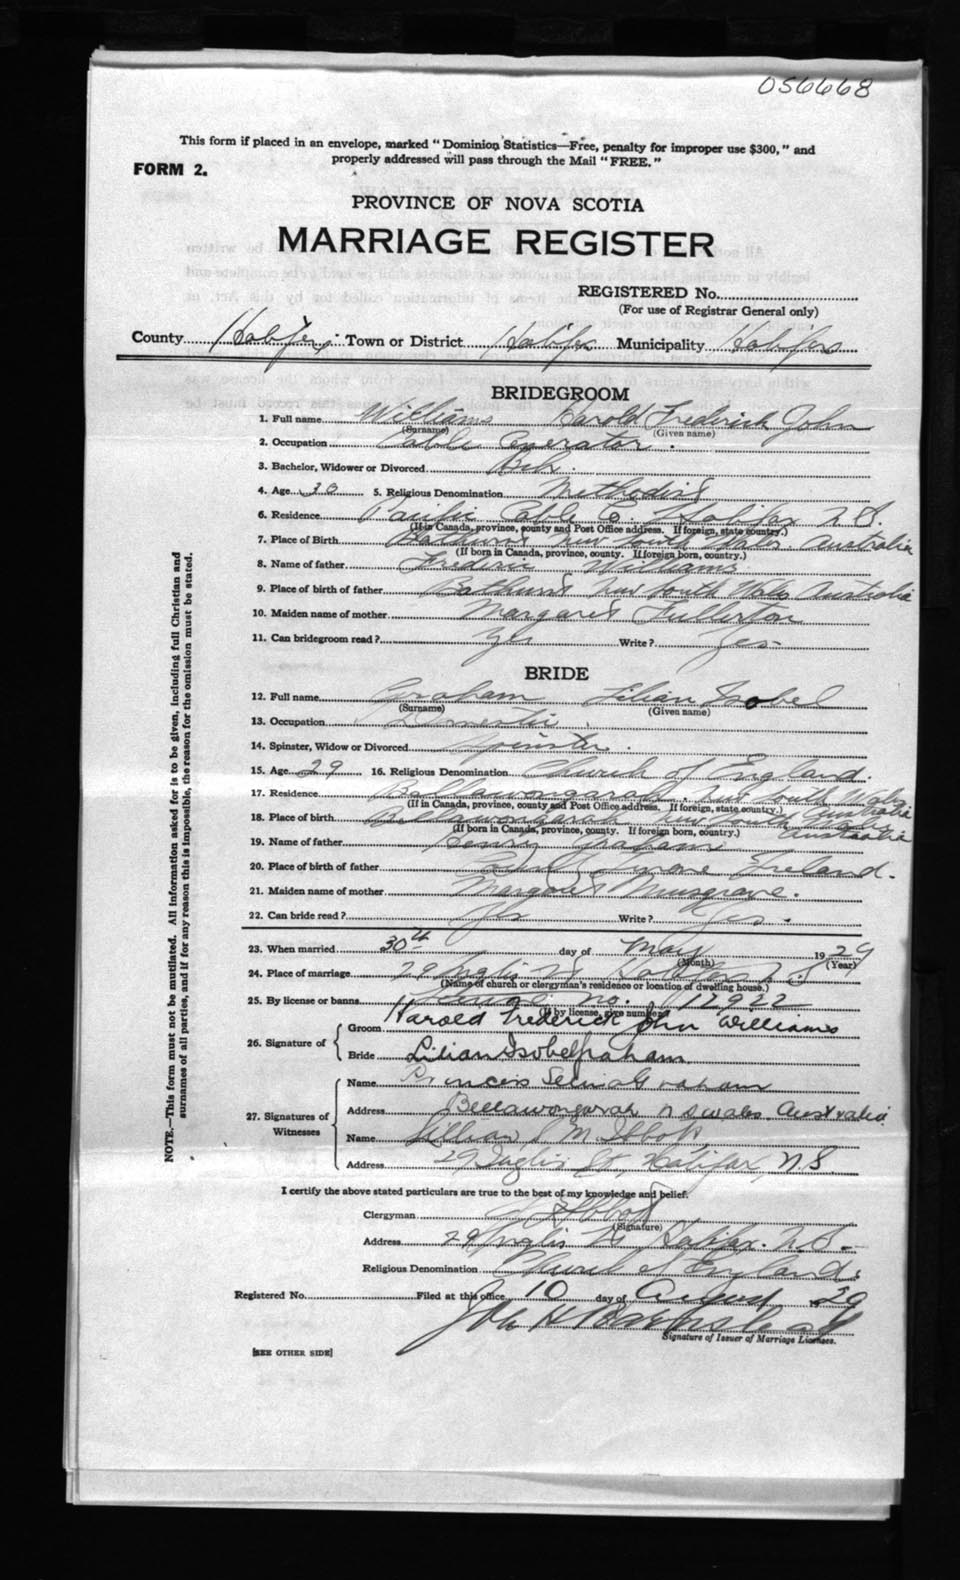 056668
This form if placed in an envelope, marked "Dominion Statistics—Free, penalty for improper use $300," and
properly addressed will pass through the Mail "FREE."
FORM 2.
PROVINCE OF NOVA SCOTIA
MARRIAGE REGISTER
REGISTERED No.
(For use of Registrar General only)
County Halifax, Town or District Halifax Municipality Halifax
BRIDEGROOM
1. Full name Williams Harold Frederick John
(Surname) (Given name)
2. Occupation Cable Operator.
3. Bachelor, Widower or Divorced Bch.
4. Age 30 5. Religious Denomination Methodist
6. Residence Pacific Cable Co Halifax N.S.
(If in Canada, province, county and Post Office address. If foreign, state country.)
7. Place of Birth Bathurst New South Wales Australia
(If born in Canada, province, county. If foreign born, country.)
8. Name of father Frederic Williams
9. Place of birth of father Bathurst New South Wales Australia
10. Maiden name of mother Margaret Fullerton
11. Can bridegroom read? Yes Write? Yes
BRIDE
12. Full name Graham Lilian Isobel
(Surname) (Given name)
13. Occupation Domestic
14. Spinster, Widow or Divorced Spinster.
15. Age 29 16. Religious Denomination Church of England.
17. Residence Bellawongarah. New South Wales Australia
(If in Canada, province, county and Post Office Address. If foreign, state country.)
18. Place of birth Bellawongarah New South Wales Australia
(If born in Canada, province, county. If foreign born, country.)
19. Name of father Henry Graham
20. Place of birth of father Ireland.
21. Maiden name of mother Margaret Musgrave.
22. Can bride read? Yes Write? Yes.
23. When married 30th day of May 1929
(Month) (Year)
24. Place of marriage 29 Inglis St Halifax N.S
(Name of church or clergyman's residence or location of dwelling house.)
25. By license or banns License no. 17922
(If by license, give number)
26. Signature of Groom Harold Frederick John Williams
Bride Lilian Isobel Graham
27. Signatures of Witnesses
Name Princess Selina Graham
Address Bellawongarah N S Wales Australia
Name Lillian M Abbott,
Address 29 Inglis St, Halifax, N.S.
I certify the above stated particulars are true to the best of my knowledge and belief.
Clergyman Abbott
(Signature)
Address 29 Inglis St Halifax. N.S.
Religious Denomination Church of England.
Registered No. Filed at this office 10 day of August 1929
Signature of Issuer of Marriage Licenses.
[SEE OTHER SIDE]
NOTE.—This form must not be mutilated. All information asked for is to be given, including full Christian and
surnames of all parties, and if for any reason this is impossible, the reason for the omission must be stated.